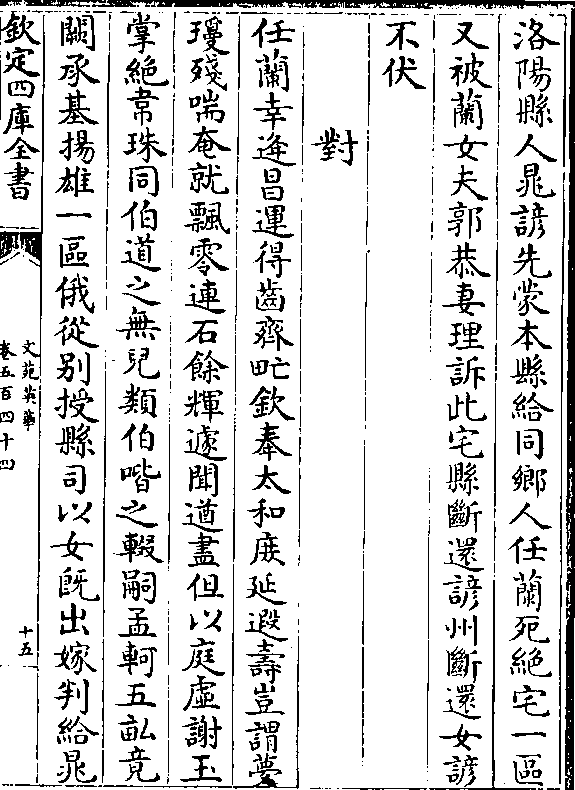 洛陽縣人晁諺先蒙本縣給同鄉人任蘭死絶宅一區
又被蘭女夫郭恭妻理訴此宅縣斷還諺州斷還女諺
不伏
對
任蘭幸逄昌運得齒齊甿欽奉太和庻延遐壽豈謂夢
瓊殘喘奄就飄零連石餘輝遽聞遒盡但以庭虛謝玉
掌絶韋珠同伯道之無兒類伯喈之輟嗣孟軻五畝竟
闕承基揚雄一區俄從别授縣司以女旣出嫁判給晁
欽定四庫全書
文苑英華
卷五百四十四
十五